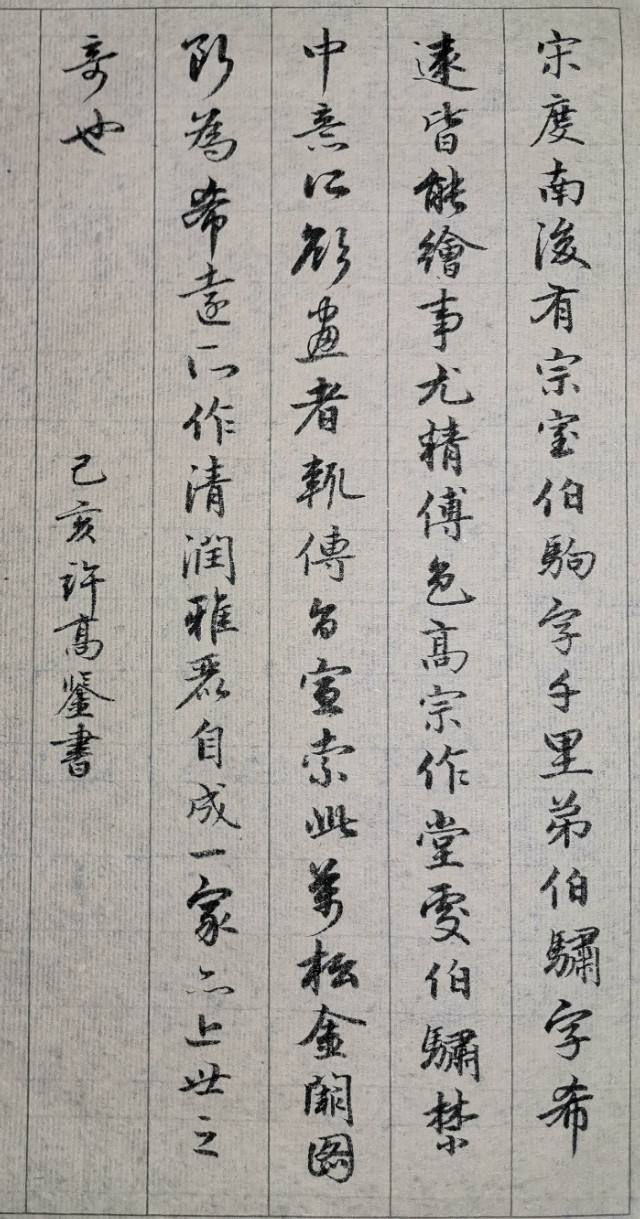 宋度南後有宗室伯駒字千里弟伯驌字希
遠皆能繪事尤精傅色高宗作堂處伯驌禁
中意所欲畫者輒傳旨宣索此萬松金闕圖
即為希遠所作清潤雅麗自成一家亦上世之
奇也
己亥許高鑒書